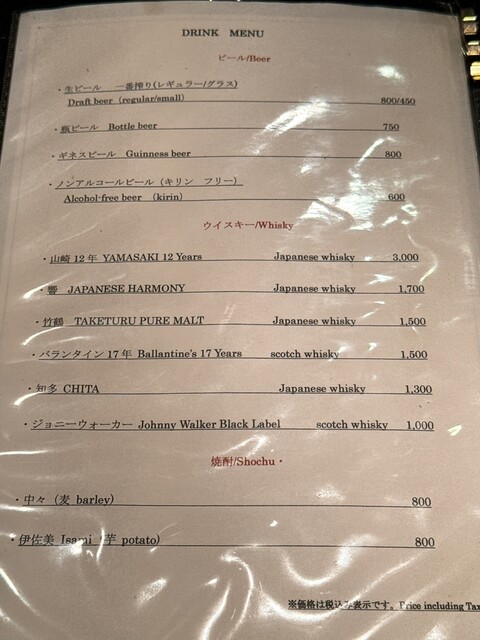 DRINK MENU
ビール/Beer
・生ビール 一番搾り(レギュラー/グラス)
Draft beer (regular/small) 800/450
・瓶ビール Bottle beer 750
・ギネスビール Guinness beer 800
・ノンアルコールビール (キリン フリー)
Alcohol-free beer (kirin) 600
ウイスキー/Whisky
・山崎 12 年 YAMASAKI 12 Years Japanese whisky 3,000
・響 JAPANESE HARMONY Japanese whisky 1,700
・竹鶴 TAKETURU PURE MALT Japanese whisky 1,500
・バランタイン 17 年 Ballantine's 17 Years scotch whisky 1,500
・知多 CHITA Japanese whisky 1,300
・ジョニーウォーカー Johnny Walker Black Label scotch whisky 1,000
焼酎/Shochu・
・中々 (麦 barley) 800
・伊佐美 Isami (芋 potato) 800
※価格は税込み表示です。Price including Tax